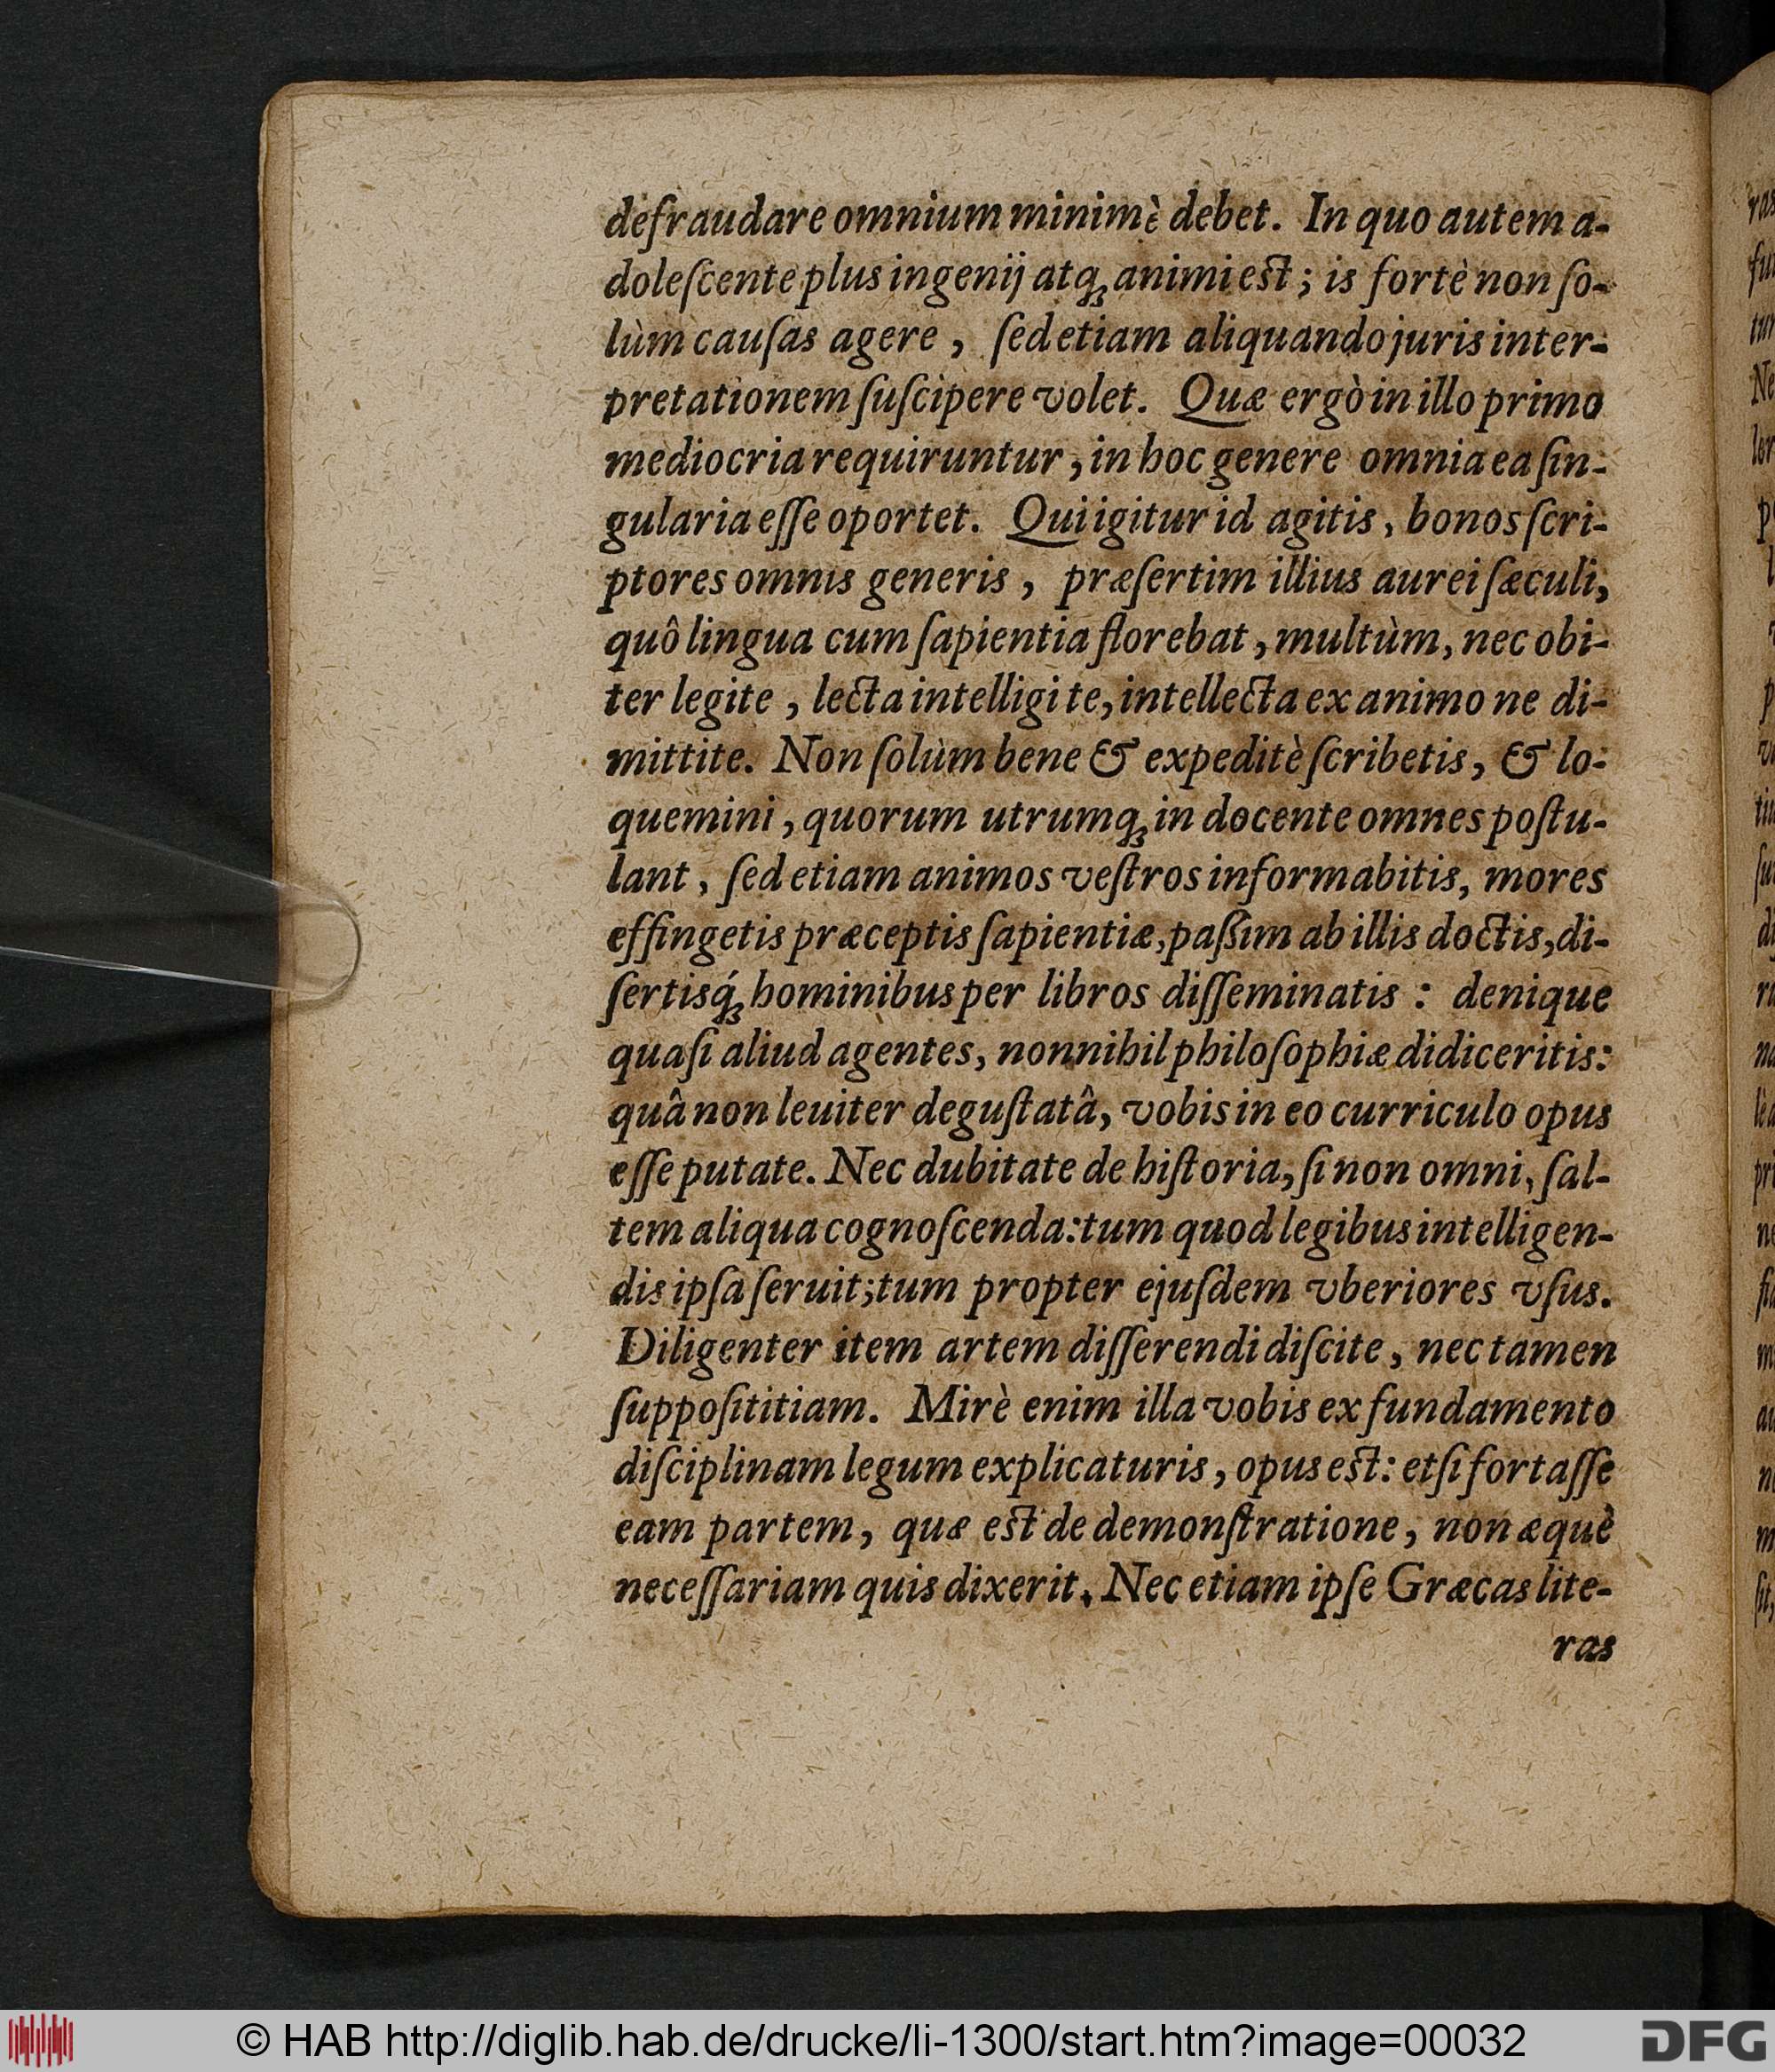 defraudare omnium minimè debet. In quo autem a-
doleſcente plus ingenij atq́ꝫ animi est; is fortè non ſo-
lùm cauſas agere, ſed etiam aliquando juris inter-
pretationem ſuſcipere volet. Quæ ergò in illo primo
mediocria requiruntur, in hoc genere omnia ea ſin-
gularia eſſe oportet. Qui igitur id agitis, bonos ſcri-
ptores omnis generis, præſertim illius aurei ſæculi,
quô lingua cum ſapientia florebat, multùm, nec obi-
ter legite, lecta intelligite, intellecta ex animo ne di-
mittite. Non ſolùm bene & expeditè ſcribetis, & lo-
quemini, quorum utrumqꝫ in docente omnes poſtu-
lant, ſed etiam animos veſtros informabitis, mores
effingetis præceptis ſapientiæ, paßim ab illis doctis, di-
ſertisq́ꝫ hominibus per libros diſſeminatis: denique
quaſi aliud agentes, nonnihil philoſophiæ didiceritis:
quâ non leuiter deguſtatâ, vobis in eo curriculo opus
eſſe putate. Nec dubitate de hiſtoria, ſi non omni, ſal-
tem aliqua cognoſcenda: tum quod legibus intelligen-
dis ipſa ſeruit; tum propter ejuſdem vberiores vſus.
Diligenter item artem diſſerendi diſcite, nec tamen
ſuppoſititiam. Mirè enim illa vobis ex fundamento
diſciplinam legum explicaturis, opus est: etſi fortaſſe
eam partem, quæ est de demonſtratione, non æquè
neceſſariam quis dixerit. Nec etiam ipſe Græcas lite-
ras
© HAB http://diglib.hab.de/drucke/li-1300/start.htm?image=00032
DFG